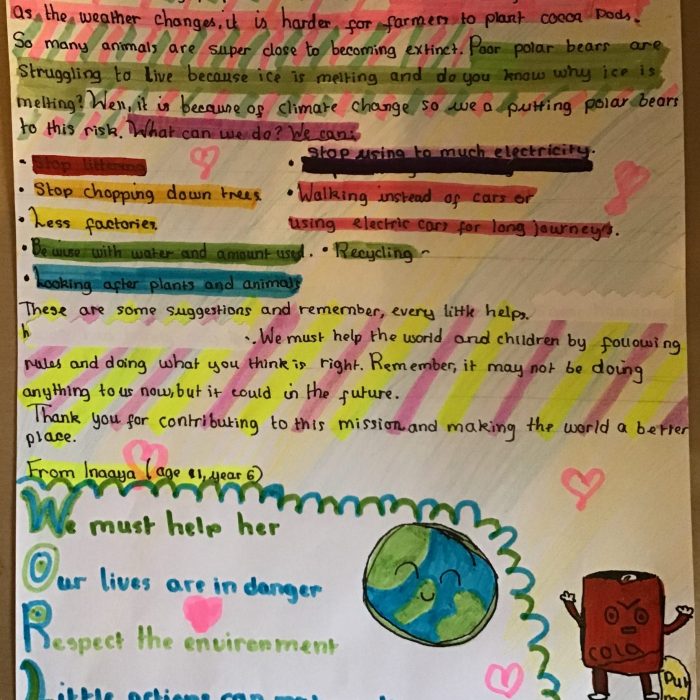 as the weather changes, it is harder for farmers to plant cocoa pods.
So many animals are super close to becoming extinct. Poor polar bears are
struggling to live because ice is melting and do you know why ice is
melting? Well, it is because of climate change so we a putting polar bears
to this risk. What can we do? We can:
• Stop littering
• Stop chopping down trees
• Less factories
• Be wise with water and amount used.
• Looking after plants and animals
• Stop using to much electricity.
• Walking instead of cars or
using electric cars for long journeys.
• Recycling
These are some suggestions and remember, every little helps.
We must help the world and children by following
rules and doing what you think is right. Remember, it may not be doing
anything to us now, but it could in the future.
Thank you for contributing to this mission and making the world a better
place.
From Inaaya (age 11, year 6)
We must help her
Our lives are in danger
Respect the environment
Little actions can
cola
Put
me